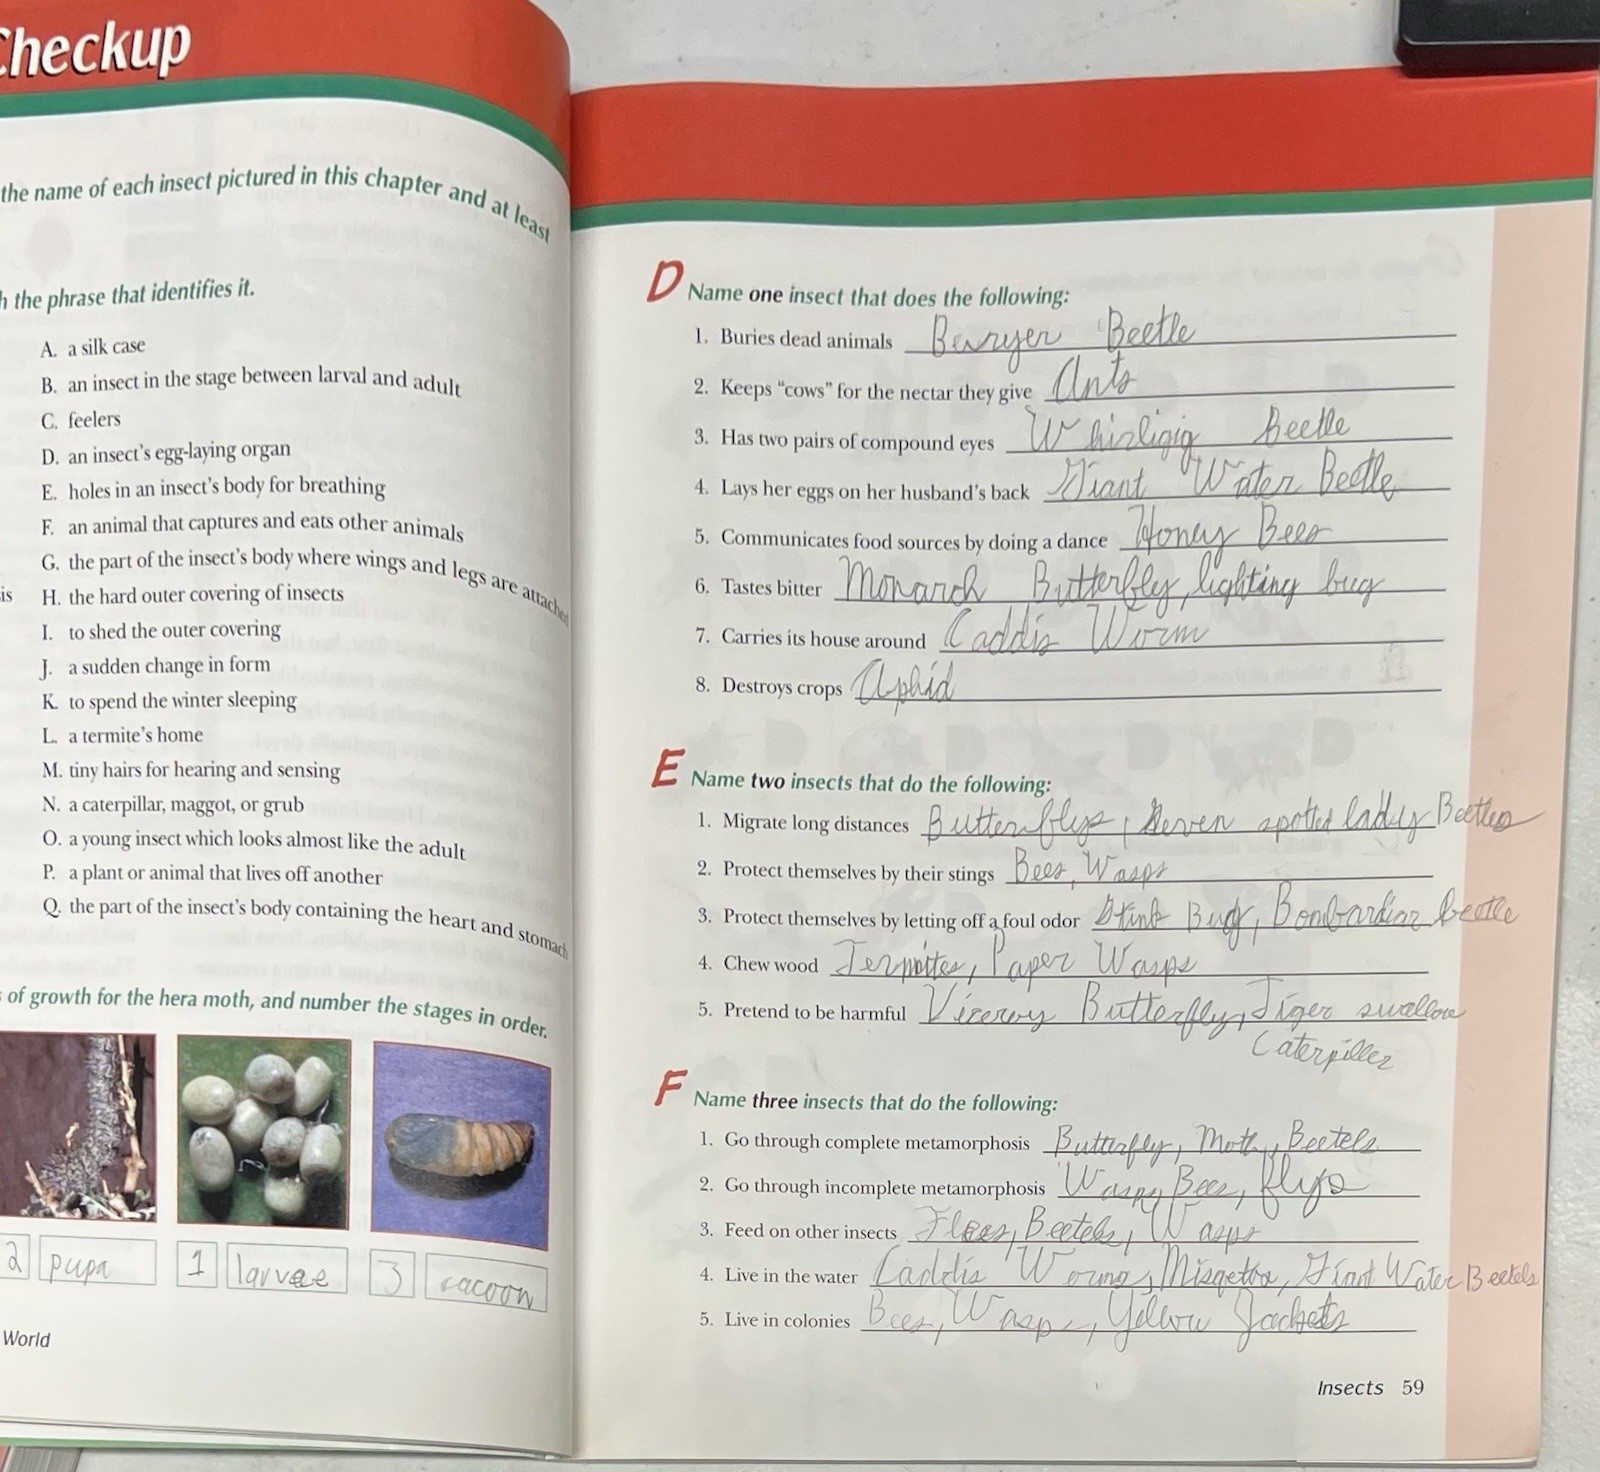 Checkup
the name of each insect pictured in this chapter and at least
h the phrase that identifies it.
A. a silk case
B. an insect in the stage between larval and adult
C. feelers
D. an insect's egg-laying organ
E. holes in an insect's body for breathing
F. an animal that captures and eats other animals
G. the part of the insect's body where wings and legs are attached
is H. the hard outer covering of insects
I. to shed the outer covering
J. a sudden change in form
K. to spend the winter sleeping
L. a termite's home
M. tiny hairs for hearing and sensing
N. a caterpillar, maggot, or grub
O. a young insect which looks almost like the adult
P. a plant or animal that lives off another
Q. the part of the insect's body containing the heart and stomach
of growth for the hera moth, and number the stages in order.
2 pupa 1 larvae 3 cacoon
World
D Name one insect that does the following:
1. Buries dead animals Beuryer Beetle
2. Keeps "cows" for the nectar they give Ants
3. Has two pairs of compound eyes Whirligig Beetle
4. Lays her eggs on her husband's back Giant Water Beetle
5. Communicates food sources by doing a dance Honey Bees
6. Tastes bitter Monarch Butterfly, lighting bug
7. Carries its house around Caddis Worm
8. Destroys crops Aphid
E Name two insects that do the following:
1. Migrate long distances Butterflys, Seven spotted laddy Beetles
2. Protect themselves by their stings Bees, Wasps
3. Protect themselves by letting off a foul odor Stink Bug, Bombardiar beetle
4. Chew wood Termites, Paper Wasps
5. Pretend to be harmful Viceroy Butterfly, Tiger swallow
Caterpiller
F Name three insects that do the following:
1. Go through complete metamorphosis Butterfly, Moth, Beetels
2. Go through incomplete metamorphosis Wasps, Bees, flys
3. Feed on other insects Beetels, Wasps
4. Live in the water Caddis Worms, Misqetos, Giant Water Beetels
5. Live in colonies Bees, Wasps, Yellow Jackets
Insects 59